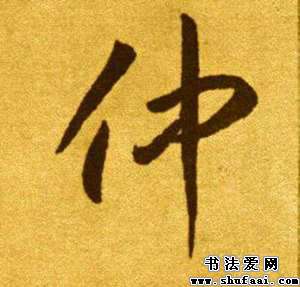 仲
书法爱网
www.shufaai.com